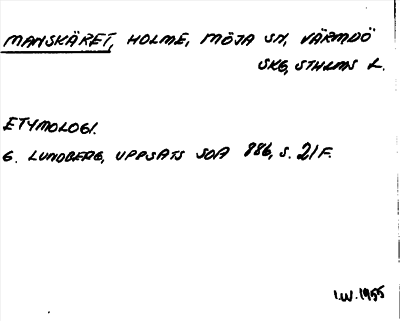 MANSKÄRET, HOLME, MÖJA SN, VÄRMDÖ
SKG, STHLMS L.
ETYMOLOGI.
G. LUNDBERG, UPPSATS SOA 886, S. 21 F.
I.W. 1955